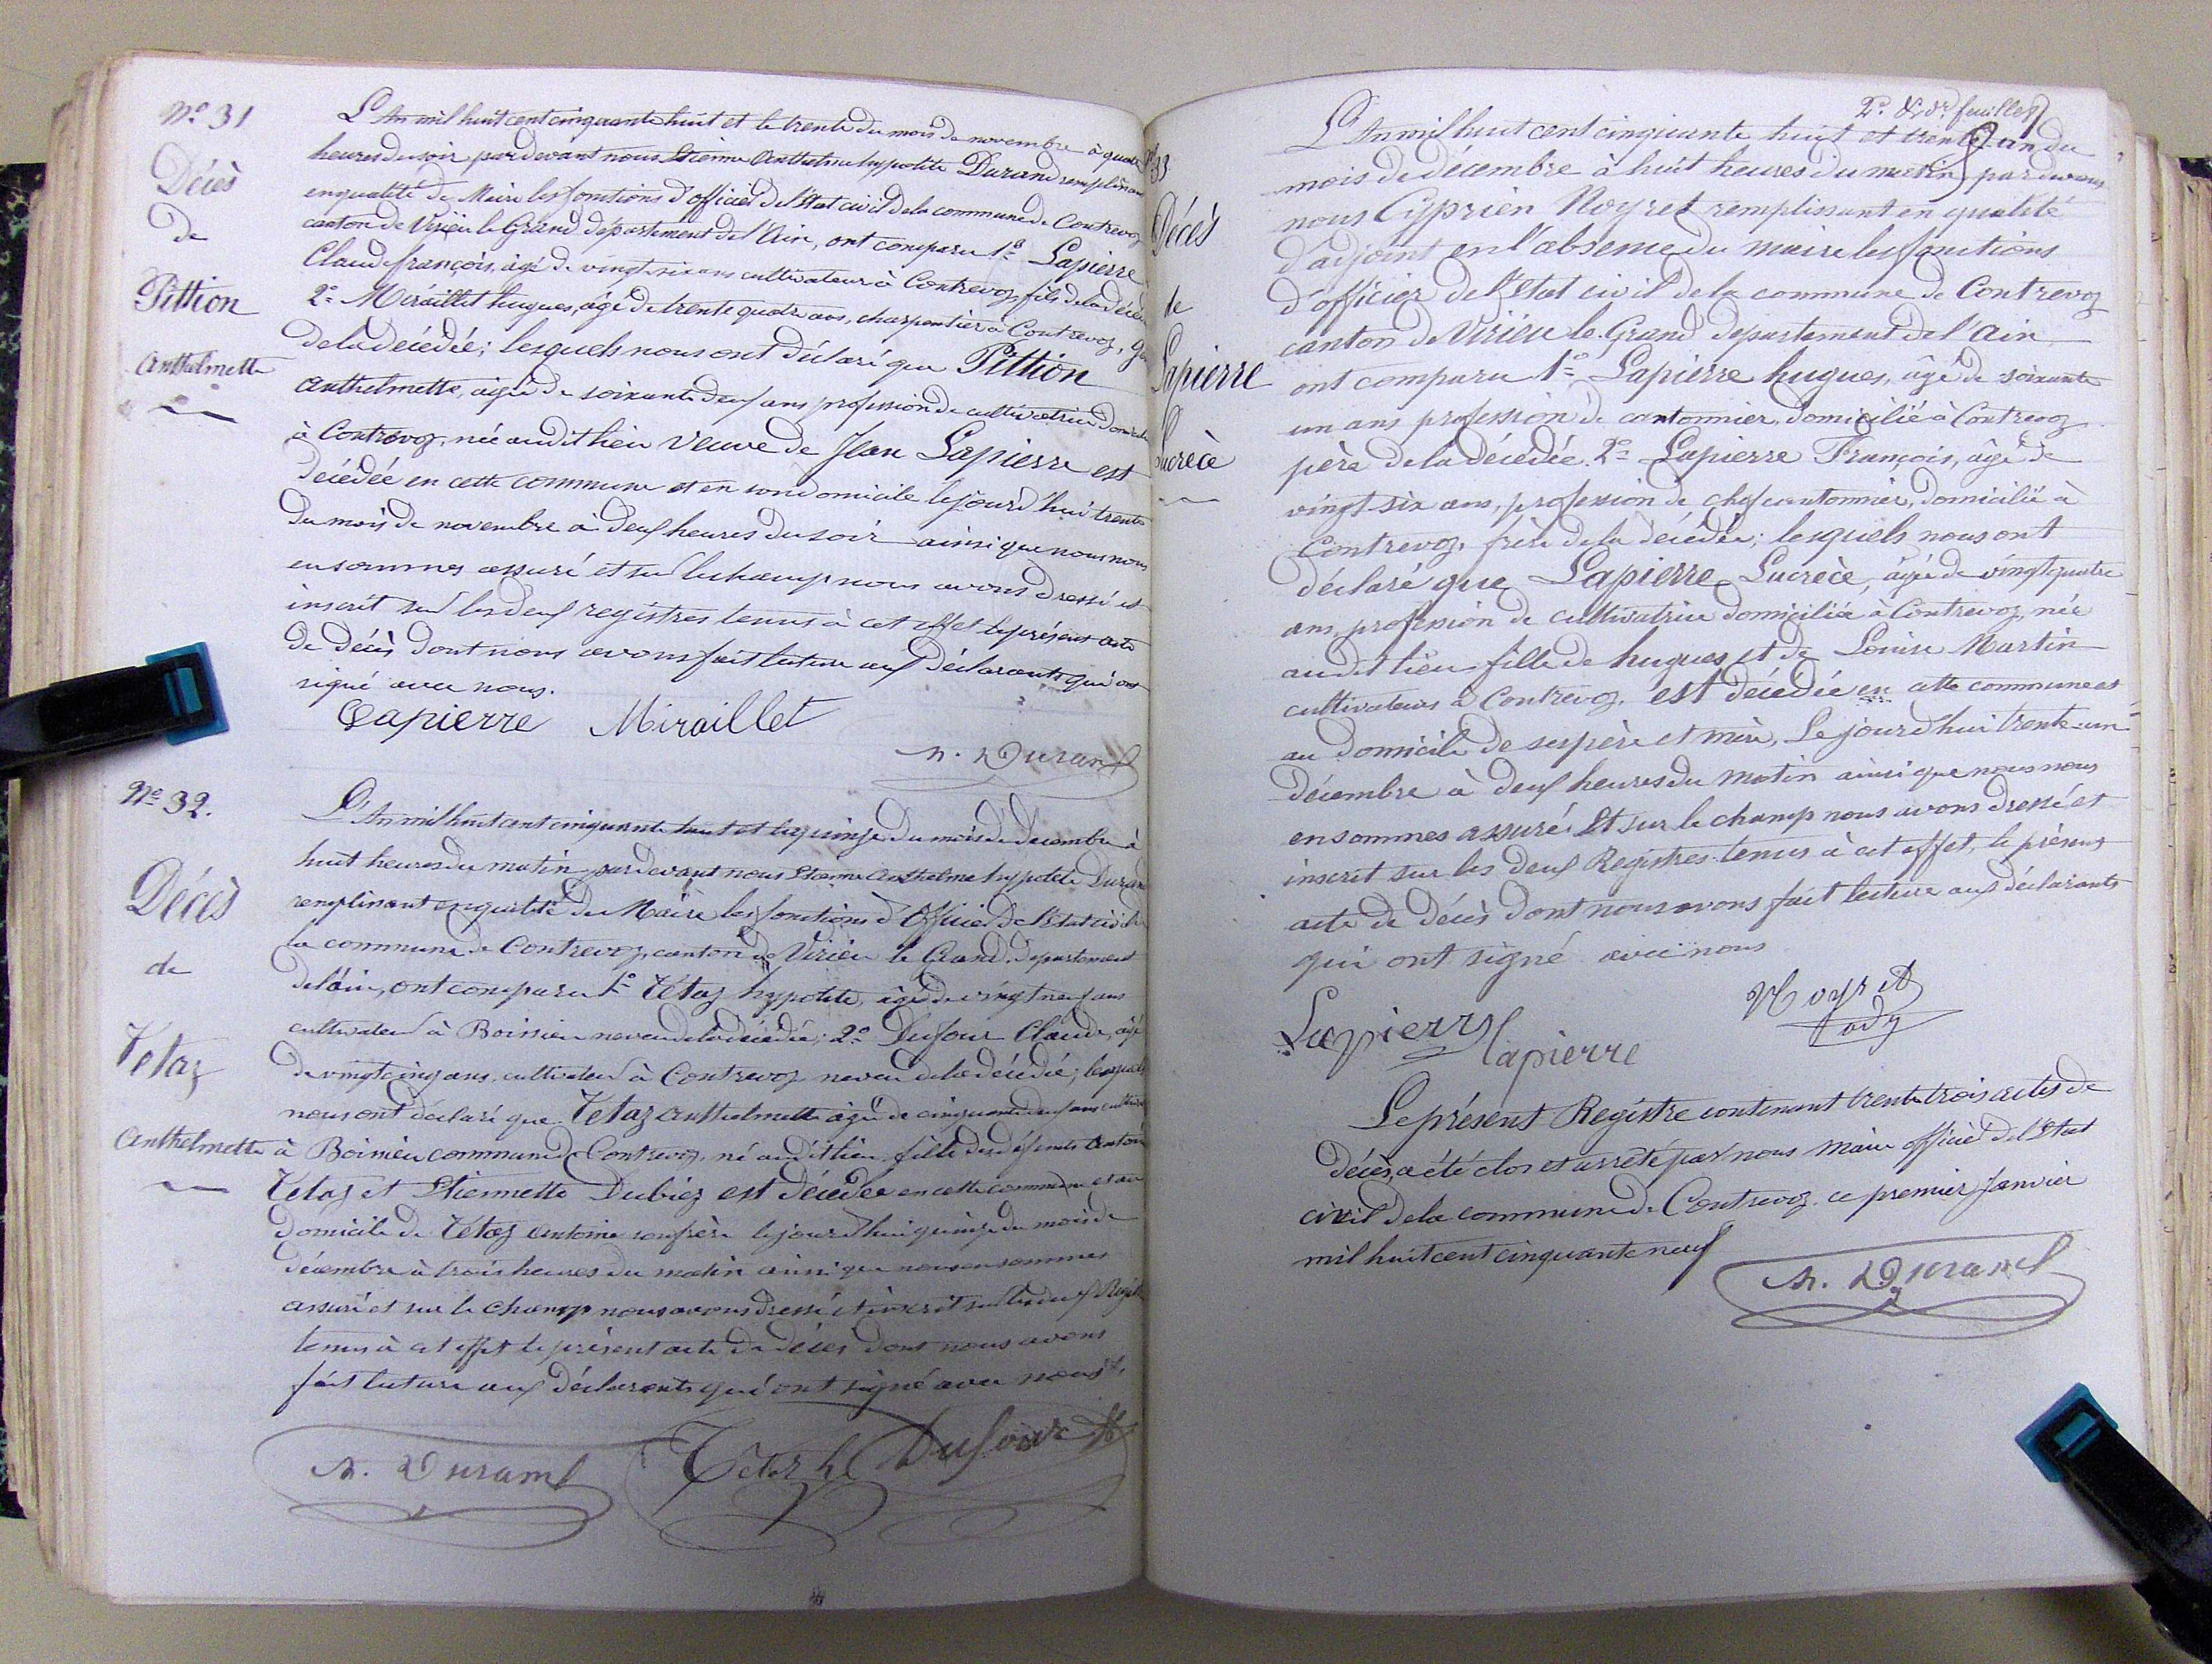 N° 31
Décès
de
Pittion
Anthelmette
L'An mil huit cent cinquante huit et le trente du mois de novembre à quatre
heures du soir pardevant nous Etienne Anthelme hypolite Durand remplissant
en qualité de Maire les fonctions d'officier de l'Etat civil de la commune de Contrevoz
canton de Virieu le Grand département de l'Ain, ont comparu 1° Lapierre
Claude françois, âgé de vingt six ans cultivateur à Contrevoz, fils de la décédée
2° Miraillet hugues, âgé de trente quatre ans, charpentier à Contrevoz,
de la décédée; lesquels nous ont déclaré que Pittion
Anthelmette, âgée de soixante deux ans profession de cultivatrice
à Contrevoz, née audit lieu veuve de Jean Lapierre est
décédée en cette commune et en son domicile le jourd'hui trente
du mois de novembre à deux heures du soir ainsi que nous nous
en sommes assuré et sur le champ nous avons dressé et
inscrit sur les deux registres tenus à cet effet le présent acte
de décès dont nous avons fait lecture aux déclarants qui ont
signé avec nous.
Lapierre Miraillet
h. Durand
N° 32.
Décès
de
Tétaz
Anthelmette
L'An mil huit cent cinquante huit et le quinze du mois de décembre à
huit heures du matin pardevant nous Etienne Anthelme hypolite Durand
remplissant en qualité du Maire les fonctions d'Officier de l'Etat civil de
la commune de Contrevoz, canton de Virieu le Grand, département
de l'ain, ont comparu 1° Tétaz hypolite, âgé de vingt neuf ans
cultivateur à Boissieu neveu de la décédée; 2° Dufour Claude, âgé
de vingt cinq ans, cultivateur à Contrevoz neveu de la décédée; lesquels
nous ont déclaré que Tétaz Anthelmette âgée de cinquante deux ans
à Boissieu commune de Contrevoz, né audit lieu, fille des défunts Antoine
Tétaz et Etiennette Dubiez est décédée en cette commune et au
domicile de Tétaz Antoine son frère le jourd'hui quinze du mois de
décembre à trois heures du matin ainsi que nous en sommes
assuré et sur le champ nous avons dressé et inscrit sur les deux Registres
tenus à cet effet le présent acte de décès dont nous avons
fait lecture aux déclarants qui ont signé avec nous.
h. Durand Tetaz h. Dufour
2° & dr. feuillet
33
Décès
de
Lapierre
Lucrèce
L'An mil huit cent cinquante huit et trente un du
mois de décembre à huit heures du matin pardevant
nous Cyprien Noyret remplissant en qualité
d'adjoint en l'absence du maire les fonctions
d'officier de l'Etat civil de la commune de Contrevoz
canton de Virieu le Grand département de l'Ain
ont comparu 1° Lapierre hugues, âgé de soixante
un ans profession de cantonnier, domicilié à Contrevoz
père de la décédée. 2° Lapierre François, âgé de
vingt-six ans, profession de chef cantonnier, domicilié à
Contrevoz, frère de la décédée; lesquels nous ont
déclaré que Lapierre Lucrèce, âgée de vingt quatre
ans, profession de cultivatrice domiciliée à Contrevoz, née
audit lieu fille de hugues et de Louise Martin
cultivateurs à Contrevoz, est décédée en cette commune et
au domicile de ses père et mère, le jourd'hui trente-un
décembre à deux heures du matin ainsi que nous nous
en sommes assuré. Et sur le champ nous avons dressé et
inscrit sur les deux Registres tenus à cet effet, le présent
acte de décès dont nous avons fait lecture aux déclarants
qui ont signé avec nous
Lapierre Lapierre Noyret
adj
Le présent Registre contenant trente trois actes de
décès, a été clos et arrêté par nous Maire officier de l'Etat
civil de la commune de Contrevoz ce premier Janvier
mil huit cent cinquante neuf
h. Durand